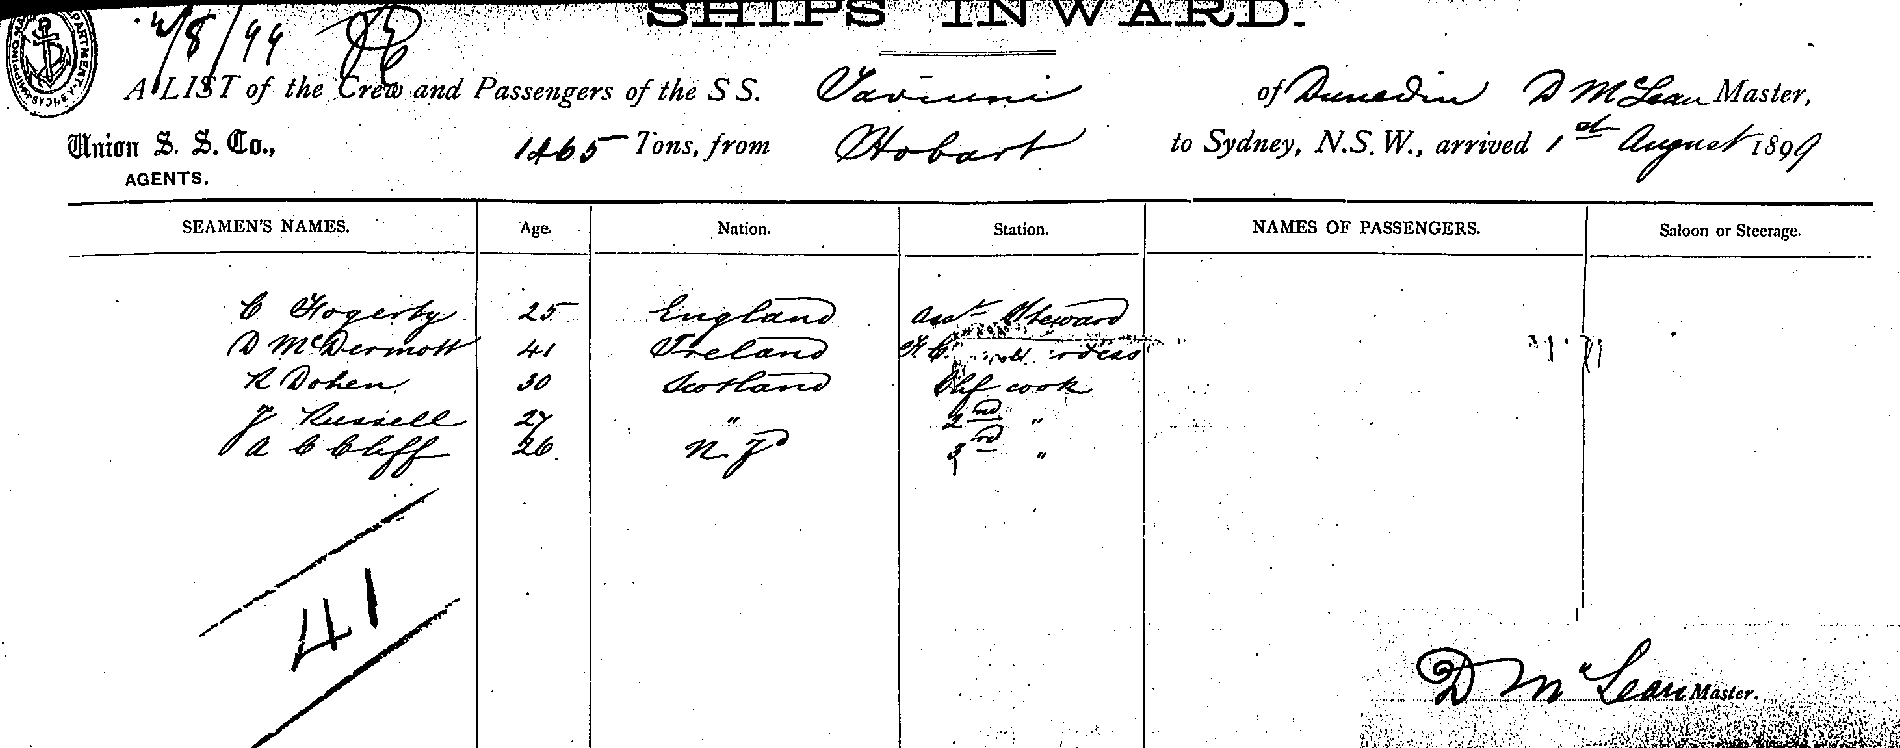 2/8/99
SHIPS INWARD.
A LIST of the Crew and Passengers of the S S. Taviuni of Dunedin D McLean Master,
Union S. S. Co., 1465 Tons, from Hobart to Sydney, N.S.W., arrived 1st August 1899
AGENTS.
SEAMEN'S NAMES. Age. Nation. Station. NAMES OF PASSENGERS. Saloon or Steerage.
C Fogerty 25 England Asst Steward
D McDermott 41 Ireland F.C.
R Dohen 30 Scotland Chf cook
J Russell 27 " 2nd "
A C Cliff 26 N. Zd 3rd "
41
D McLean Master.